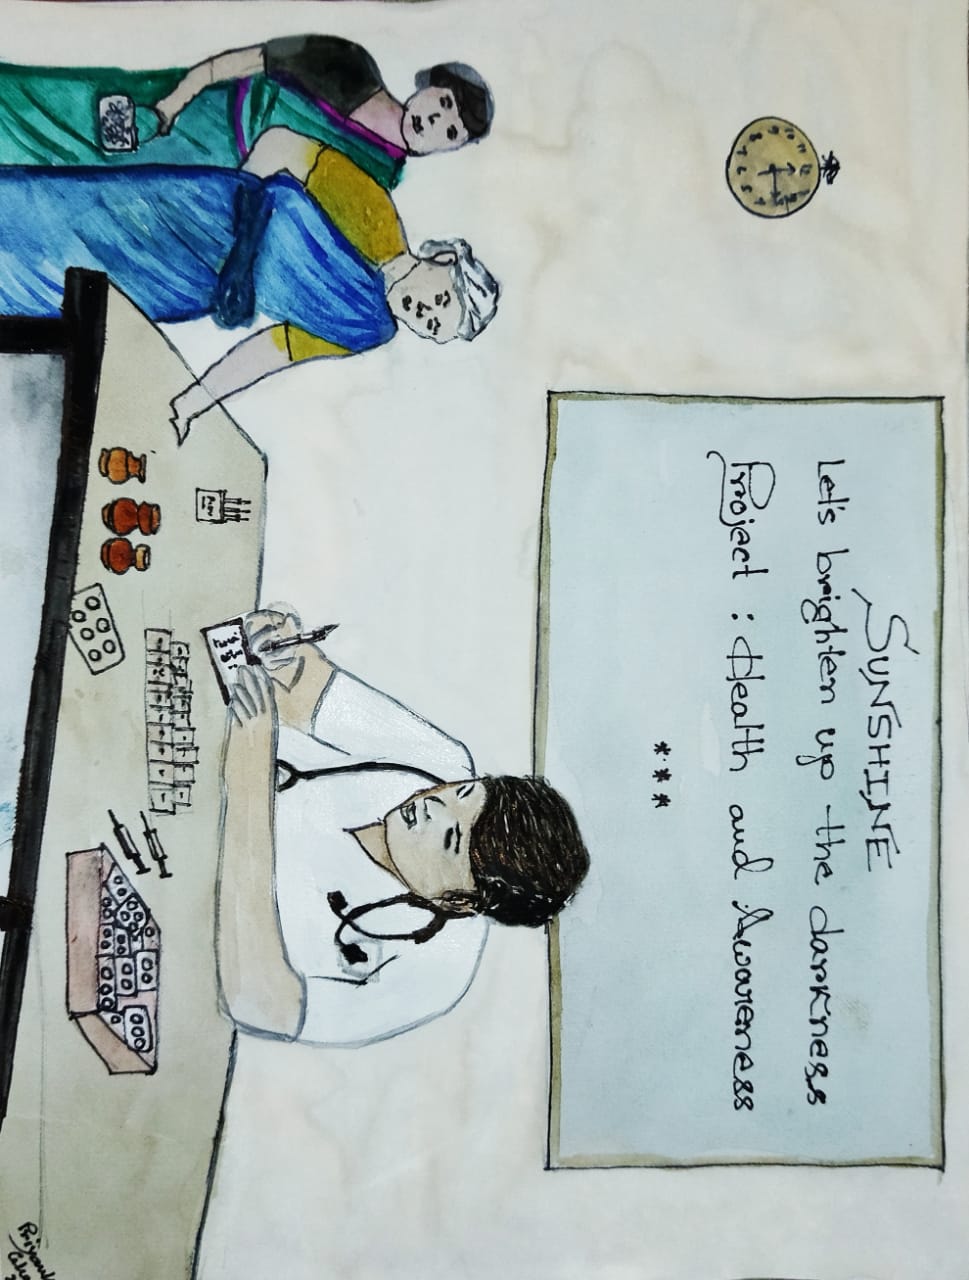 SUNSHINE
Let's brighten up the darkness
Project : Health and Awareness
***